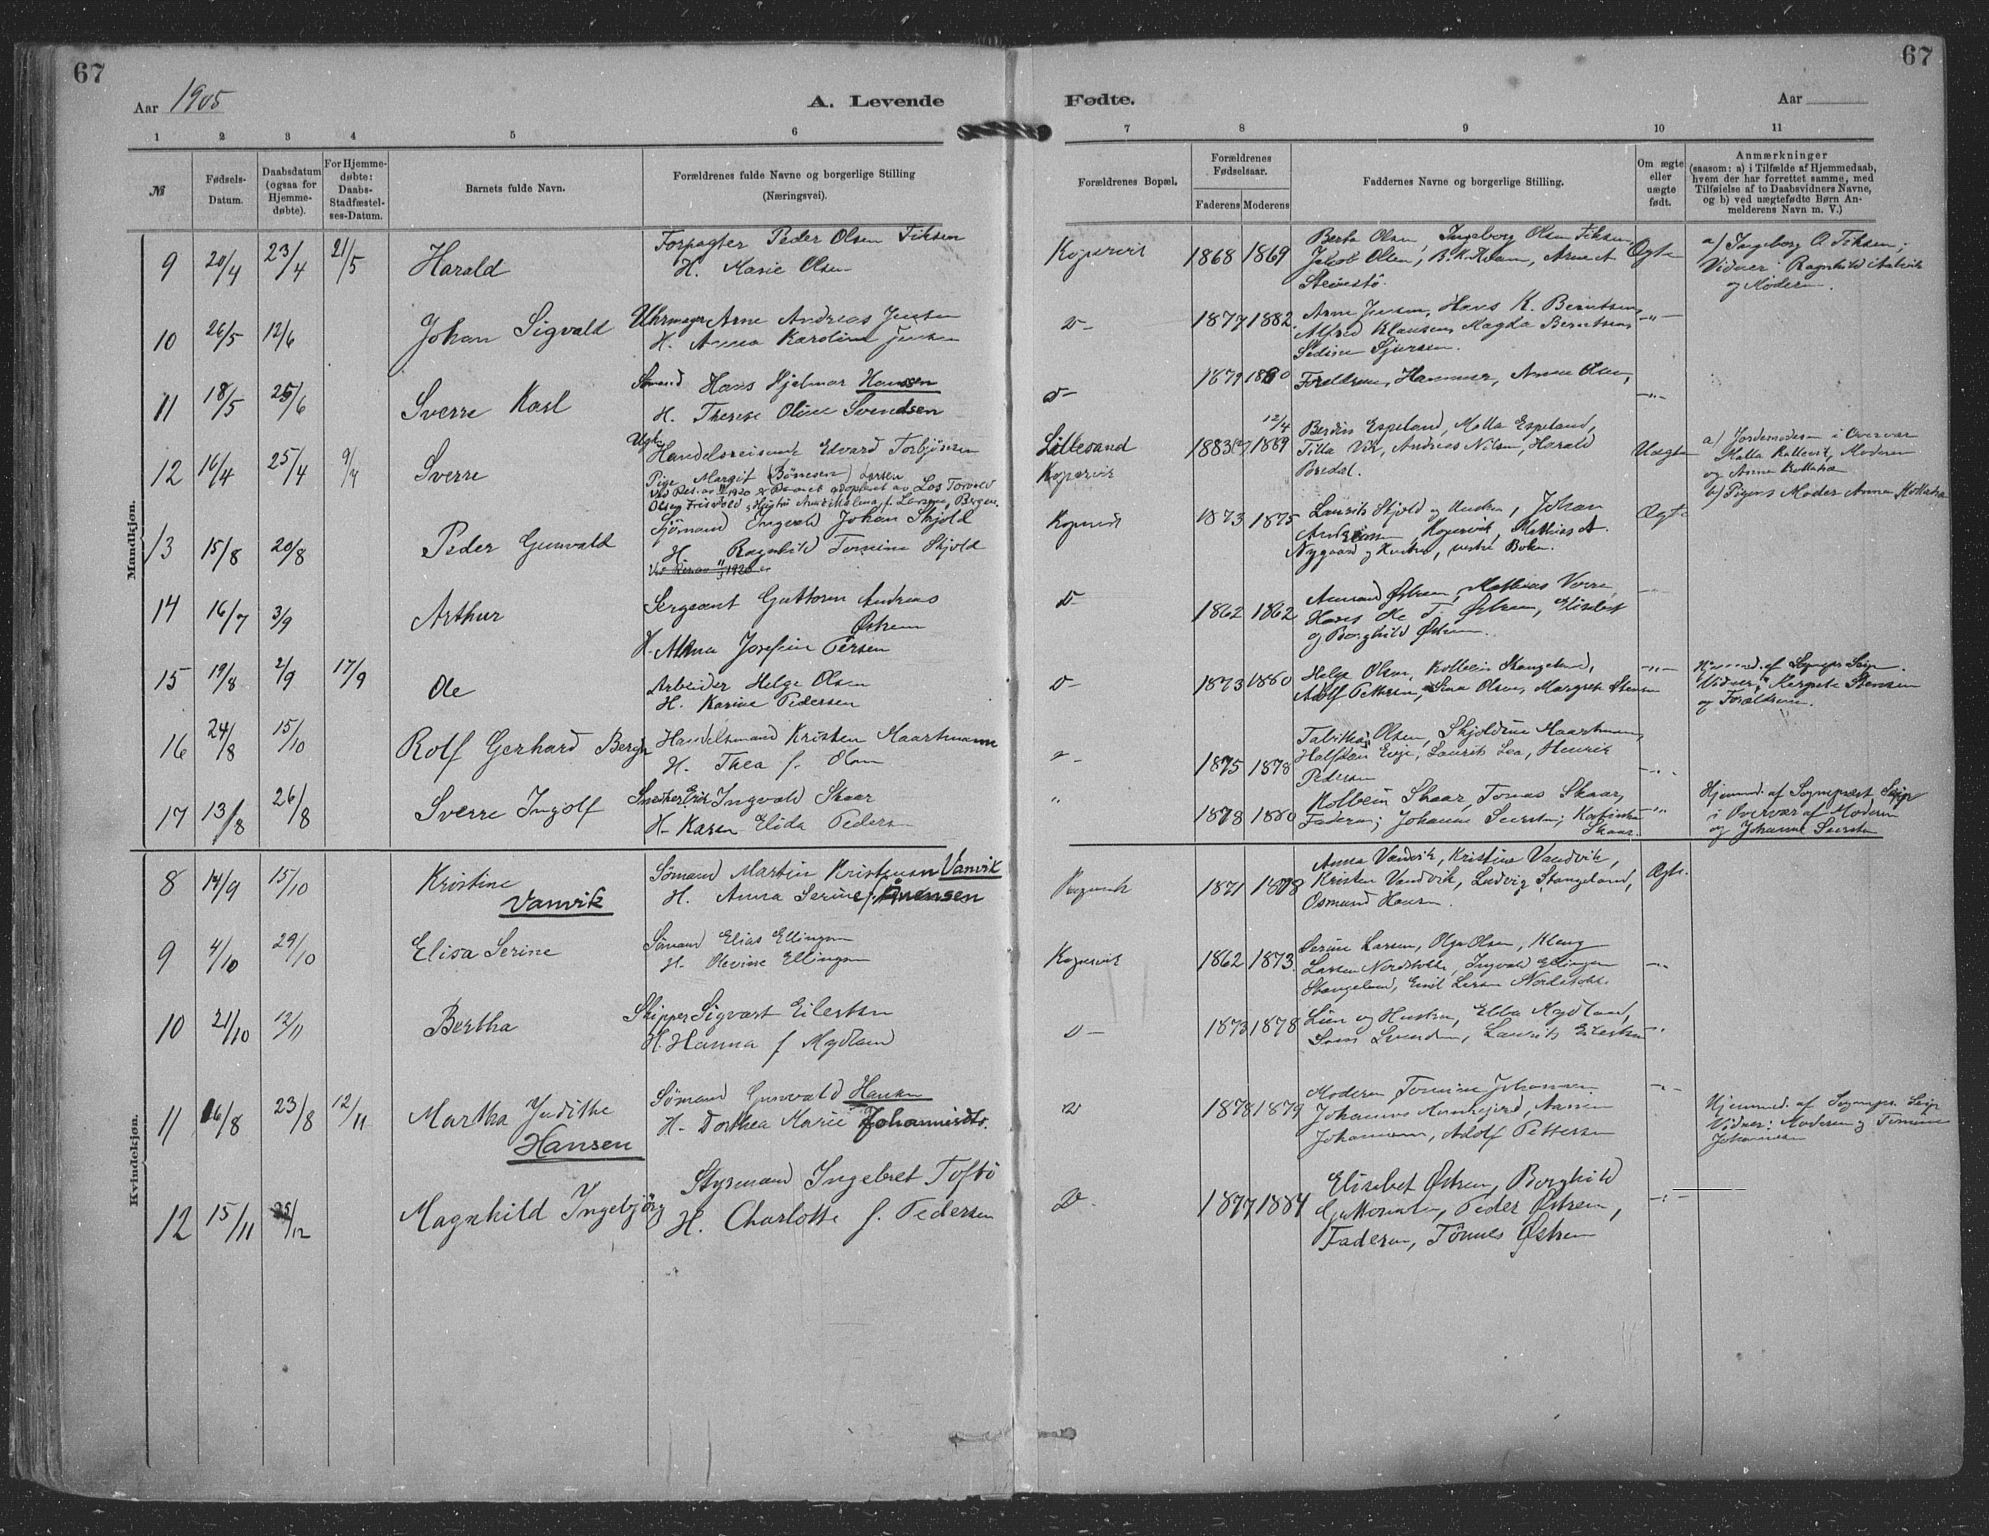 67
67
Aar 1905
A. Levende
Fødte.
Aar
1 2 3 4 5 6 7 8 9 10 11
№
Fødsels-Datum.
Daabsdatum (ogsaa for Hjemme-døbte).
For Hjemme-døbte: Daabs-Stadfæstel-ses-Datum.
Barnets fulde Navn.
Forældrenes fulde Navne og borgerlige Stilling (Næringsvei).
Forældrenes Bopæl.
Forældrenes Fødselsaar.
Faderens Moderens
Faddernes Navne og borgerlige Stilling.
Om ægte eller uægte født.
Anmærkninger
(saasom: a) i Tilfælde af Hjemmedaab,
hvem der har forrettet samme, med
Tilføielse af to Daabsvidners Navne,
og b) ved uægtefødte Børn An-
melderens Navn m. V.)
Mandkjøn.
9 20/4 23/4 21/5 Harald
Forpagter Peder Olsen Tiksen
H. Marie Olsen
Kopervik 1868 1869
Berta Olsen, Ingeborg Olsen Tiksen,
Jakob Olsen, Arne
Ægte
a) Ingeborg O. Tiksen;
Vidner: Ragnhild
og Moderen.
10 26/5 12/6 Johan Sigvald
Uhrmager Arne Andreas Jensen
H. Anna Karoline Jensen
D- 1877 1882
Arne Jensen, Hans K. Berntsen,
Alfred Klausen, Magda Berntsen
Sedine Sjursen.
11 18/5 25/6 Sverre Karl
Sømand Hans Hjelmar Hansen
H. Therese Oline Svendsen
D- 1879 1880
Forældrene, Hammer, Anne Olsen,
12 16/4 25/4 9/7 Sverre
Ugk. Handelsreisende Edvard Torbjønsen
Pige Margit (Bønesen) Larsen
Lillesand
Kopervik 1883 12/4 1889
Berdin Espeland, Malla Espeland,
Titta Vik, Andreas Nilsen, Harald
Bredal.
Uægte
a) Jordemoderen i Overvær
Malla Kallevik, Moderen
og Anne
b) Pigens Moder Anne
13 15/8 20/8 Peder Gunvald
Sjømand Ingvald Johan Skjold
H. Ragnhild Tomine Skjold
Kopervik 1873 1875
Laurits Skjold og Hustru, Johan
Kopervik, Mathias A.
Nygaard og Hustru, vestre Bokn.
Ægte
14 16/7 3/9 Arthur
Sergeant Guttorm Andreas
Østrem
H. Anna Josefine Persen
D- 1862 1862
Amund Østrem, Mathias Vorre,
Østrem, Elisabet
og Borghild Østrem.
15 19/8 2/9 17/9 Ole
Arbeider Helge Olsen
H. Karine Pedersen
D- 1873 1880
Helge Olsen, Kolbein Stangeland,
Adolf Pettersen, Lina Olsen, Margrete Stensen
Hjemmd. af Sognepr. Seip
Vidner: Stensen
og Forældrene.
16 24/8 15/10 Rolf Gerhard Bergh
Handelsmand Kristen Maartmann
H. Thea f. Olsen
1875 1878
Tabitha Olsen, Skjoldine Maartmann,
Halfdan Eije, Laurits Lea, Henrik
Pedersen
17 13/8 26/8 Sverre Ingolf
Snedker Erik Ingvald Skaar
H. Karen Elida Peders.
1878 1880
Kolbein Skaar, Tomas Skaar,
Faderen; Johanne Sivertsen,
Skaar.
Hjemmd. af Sogneprest Seip
i Overvær af Moderen
og Johanne Sivertsen
Kvindekjøn.
8 14/9 15/10 Kristine
Vanvik
Sømand Martin Kristensen Vanvik
H. Anna Serine f. Svensen
Kopervik 1871 1878
Anna Vandvik, Kristine Vandvik,
Kristen Vandvik, Ludvig Stangeland,
Osmund Hansen.
Ægte.
9 4/10 29/10 Elisa Serine
Sømand Elias Ellingsen
H. Olevine Ellingsen
Kopervik 1862 1873
Serine Larsen, Olga Olsen, Kleng
Larsen Nordstokke, Ingvald Ellingsen
Stangeland, Emil Larsen Nordstokke.
10 21/10 12/11 Bertha
Skipper Sigvart Eilertsen
H. Hanna f. Mydland
D- 1873 1878
Lien og Hustru, Ebba Mydland,
Svend Svendsen, Laurits Eilertsen
11 16/8 23/8 12/11 Martha Judithe
Hansen
Sømand Gunvald Hansen
H. Dorthea Marie Johannesdtr.
D 1878 1879
Moderen Tomine Johannesen
Johannes
Johannesen, Adolf Pettersen
Hjemmd. af Sognepr. Seip
Vidner: Moderen og Tomine
Johannesen
12 15/11 25/12 Magnhild Ingebjørg
Styrmand Ingebret Toftø
H. Charlotte f. Pedersen
D- 1877 1884
Elisabet Østrem, Borghild
Peder Østrem,
Faderen, Tønnes Østrem